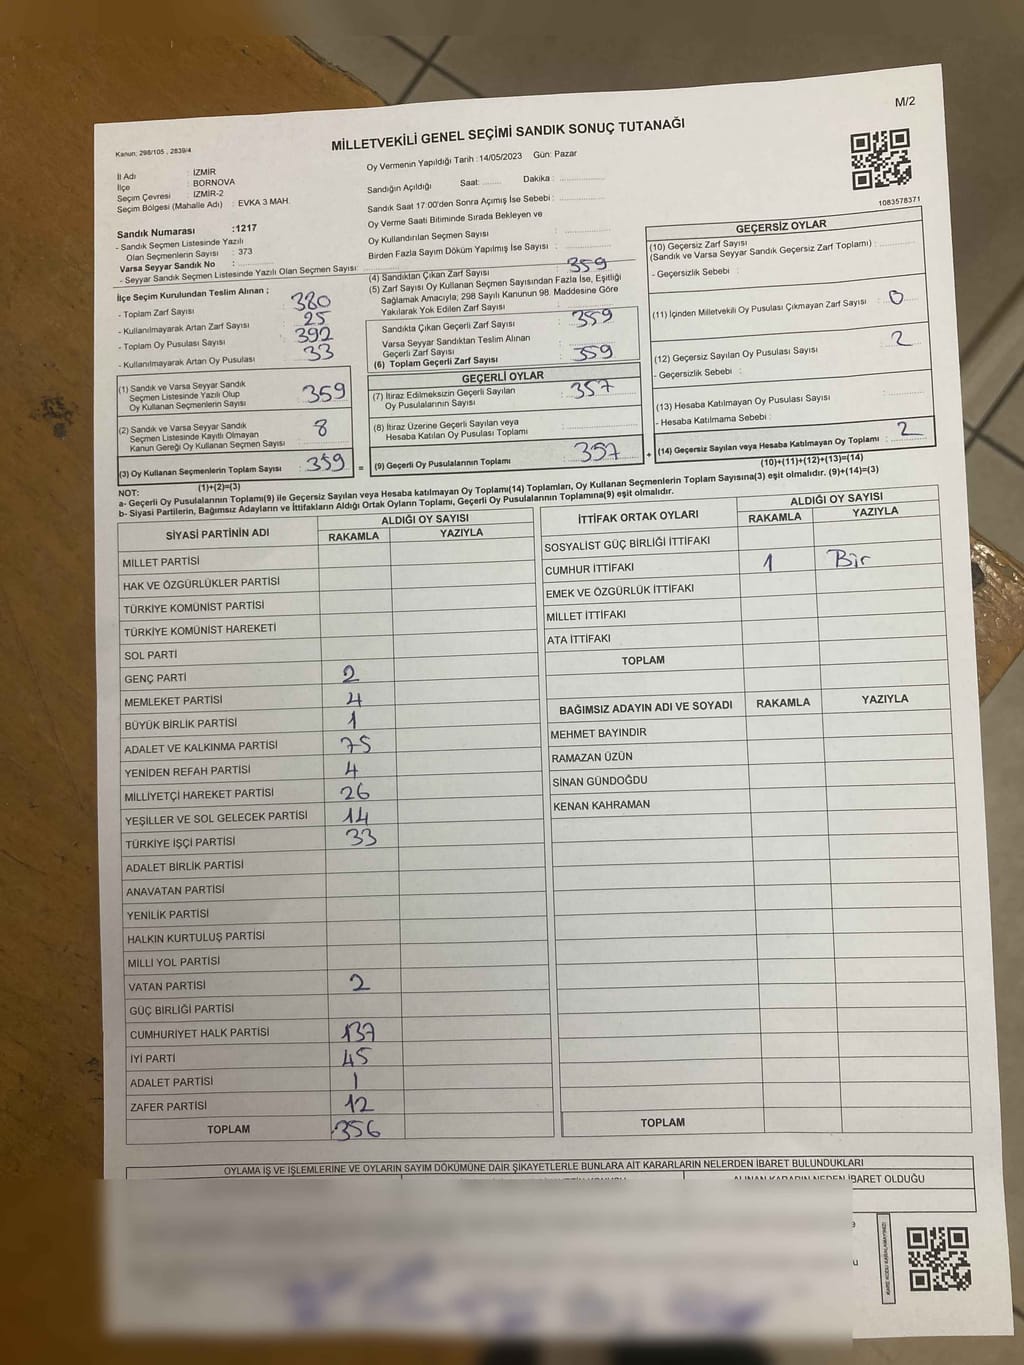 M/2
Kanun; 298/105 , 2839/4
MİLLETVEKİLİ GENEL SEÇİMİ SANDIK SONUÇ TUTANAĞI
İl Adı : İZMİR
İlçe : BORNOVA
Seçim Çevresi : İZMİR-2
Seçim Bölgesi (Mahalle Adı) : EVKA 3 MAH.
Sandık Numarası :1217
- Sandık Seçmen Listesinde Yazılı
Olan Seçmenlerin Sayısı : 373
Varsa Seyyar Sandık No :
- Seyyar Sandık Seçmen Listesinde Yazılı Olan Seçmen Sayısı:
İlçe Seçim Kurulundan Teslim Alınan ;
- Toplam Zarf Sayısı : 380
- Kullanılmayarak Artan Zarf Sayısı : 25
- Toplam Oy Pusulası Sayısı : 392
- Kullanılmayarak Artan Oy Pusulası : 33
(1) Sandık ve Varsa Seyyar Sandık
Seçmen Listesinde Yazılı Olup
Oy Kullanan Seçmenlerin Sayısı : 359
(2) Sandık ve Varsa Seyyar Sandık
Seçmen Listesinde Kayıtlı Olmayan
Kanun Gereği Oy Kullanan Seçmen Sayısı : 8
(3) Oy Kullanan Seçmenlerin Toplam Sayısı : 359
(1)+(2)=(3)
Oy Vermenin Yapıldığı Tarih : 14/05/2023 Gün: Pazar
Sandığın Açıldığı Saat: Dakika :
Sandık Saat 17:00'den Sonra Açımış İse Sebebi :
Oy Verme Saati Bitiminde Sırada Bekleyen ve
Oy Kullandırılan Seçmen Sayısı :
Birden Fazla Sayım Döküm Yapılmış İse Sayısı :
(4) Sandıktan Çıkan Zarf Sayısı : 359
(5) Zarf Sayısı Oy Kullanan Seçmen Sayısından Fazla İse, Eşitliği
Sağlamak Amacıyla; 298 Sayılı Kanunun 98. Maddesine Göre
Yakılarak Yok Edilen Zarf Sayısı :
Sandıkta Çıkan Geçerli Zarf Sayısı : 359
Varsa Seyyar Sandıktan Teslim Alınan
Geçerli Zarf Sayısı :
(6) Toplam Geçerli Zarf Sayısı : 359
GEÇERLİ OYLAR
(7) İtiraz Edilmeksizin Geçerli Sayılan
Oy Pusulalarının Sayısı : 357
(8) İtiraz Üzerine Geçerli Sayılan veya
Hesaba Katılan Oy Pusulası Toplamı :
= (9) Geçerli Oy Pusulalarının Toplamı : 357
1083578371
GEÇERSİZ OYLAR
(10) Geçersiz Zarf Sayısı
(Sandık ve Varsa Seyyar Sandık Geçersiz Zarf Toplamı) :
- Geçersizlik Sebebi :
(11) İçinden Milletvekili Oy Pusulası Çıkmayan Zarf Sayısı : 0
(12) Geçersiz Sayılan Oy Pusulası Sayısı : 2
- Geçersizlik Sebebi :
(13) Hesaba Katılmayan Oy Pusulası Sayısı :
- Hesaba Katılmama Sebebi :
+ (14) Geçersiz Sayılan veya Hesaba Katılmayan Oy Toplamı : 2
(10)+(11)+(12)+(13)=(14)
NOT:
a- Geçerli Oy Pusulalarının Toplamı(9) ile Geçersiz Sayılan veya Hesaba katılmayan Oy Toplamı(14) Toplamları, Oy Kullanan Seçmenlerin Toplam Sayısına(3) eşit olmalıdır. (9)+(14)=(3)
b- Siyasi Partilerin, Bağımsız Adayların ve İttifakların Aldığı Ortak Oyların Toplamı, Geçerli Oy Pusulalarının Toplamına(9) eşit olmalıdır.
SİYASİ PARTİNİN ADI ALDIĞI OY SAYISI
RAKAMLA YAZIYLA
MİLLET PARTİSİ
HAK VE ÖZGÜRLÜKLER PARTİSİ
TÜRKİYE KOMÜNİST PARTİSİ
TÜRKİYE KOMÜNİST HAREKETİ
SOL PARTİ
GENÇ PARTİ 2
MEMLEKET PARTİSİ 4
BÜYÜK BİRLİK PARTİSİ 1
ADALET VE KALKINMA PARTİSİ 75
YENİDEN REFAH PARTİSİ 4
MİLLİYETÇİ HAREKET PARTİSİ 26
YEŞİLLER VE SOL GELECEK PARTİSİ 14
TÜRKİYE İŞÇİ PARTİSİ 33
ADALET BİRLİK PARTİSİ
ANAVATAN PARTİSİ
YENİLİK PARTİSİ
HALKIN KURTULUŞ PARTİSİ
MİLLİ YOL PARTİSİ
VATAN PARTİSİ 2
GÜÇ BİRLİĞİ PARTİSİ
CUMHURİYET HALK PARTİSİ 137
İYİ PARTİ 45
ADALET PARTİSİ 1
ZAFER PARTİSİ 12
TOPLAM 356
İTTİFAK ORTAK OYLARI ALDIĞI OY SAYISI
RAKAMLA YAZIYLA
SOSYALİST GÜÇ BİRLİĞİ İTTİFAKI
CUMHUR İTTİFAKI 1 Bir
EMEK VE ÖZGÜRLÜK İTTİFAKI
MİLLET İTTİFAKI
ATA İTTİFAKI
TOPLAM
BAĞIMSIZ ADAYIN ADI VE SOYADI RAKAMLA YAZIYLA
MEHMET BAYINDIR
RAMAZAN ÜZÜN
SİNAN GÜNDOĞDU
KENAN KAHRAMAN
TOPLAM
OYLAMA İŞ VE İŞLEMLERİNE VE OYLARIN SAYIM DÖKÜMÜNE DAİR ŞİKAYETLERLE BUNLARA AİT KARARLARIN NELERDEN İBARET BULUNDUKLARI
ALINAN KARARIN NEDEN İBARET OLDUĞU